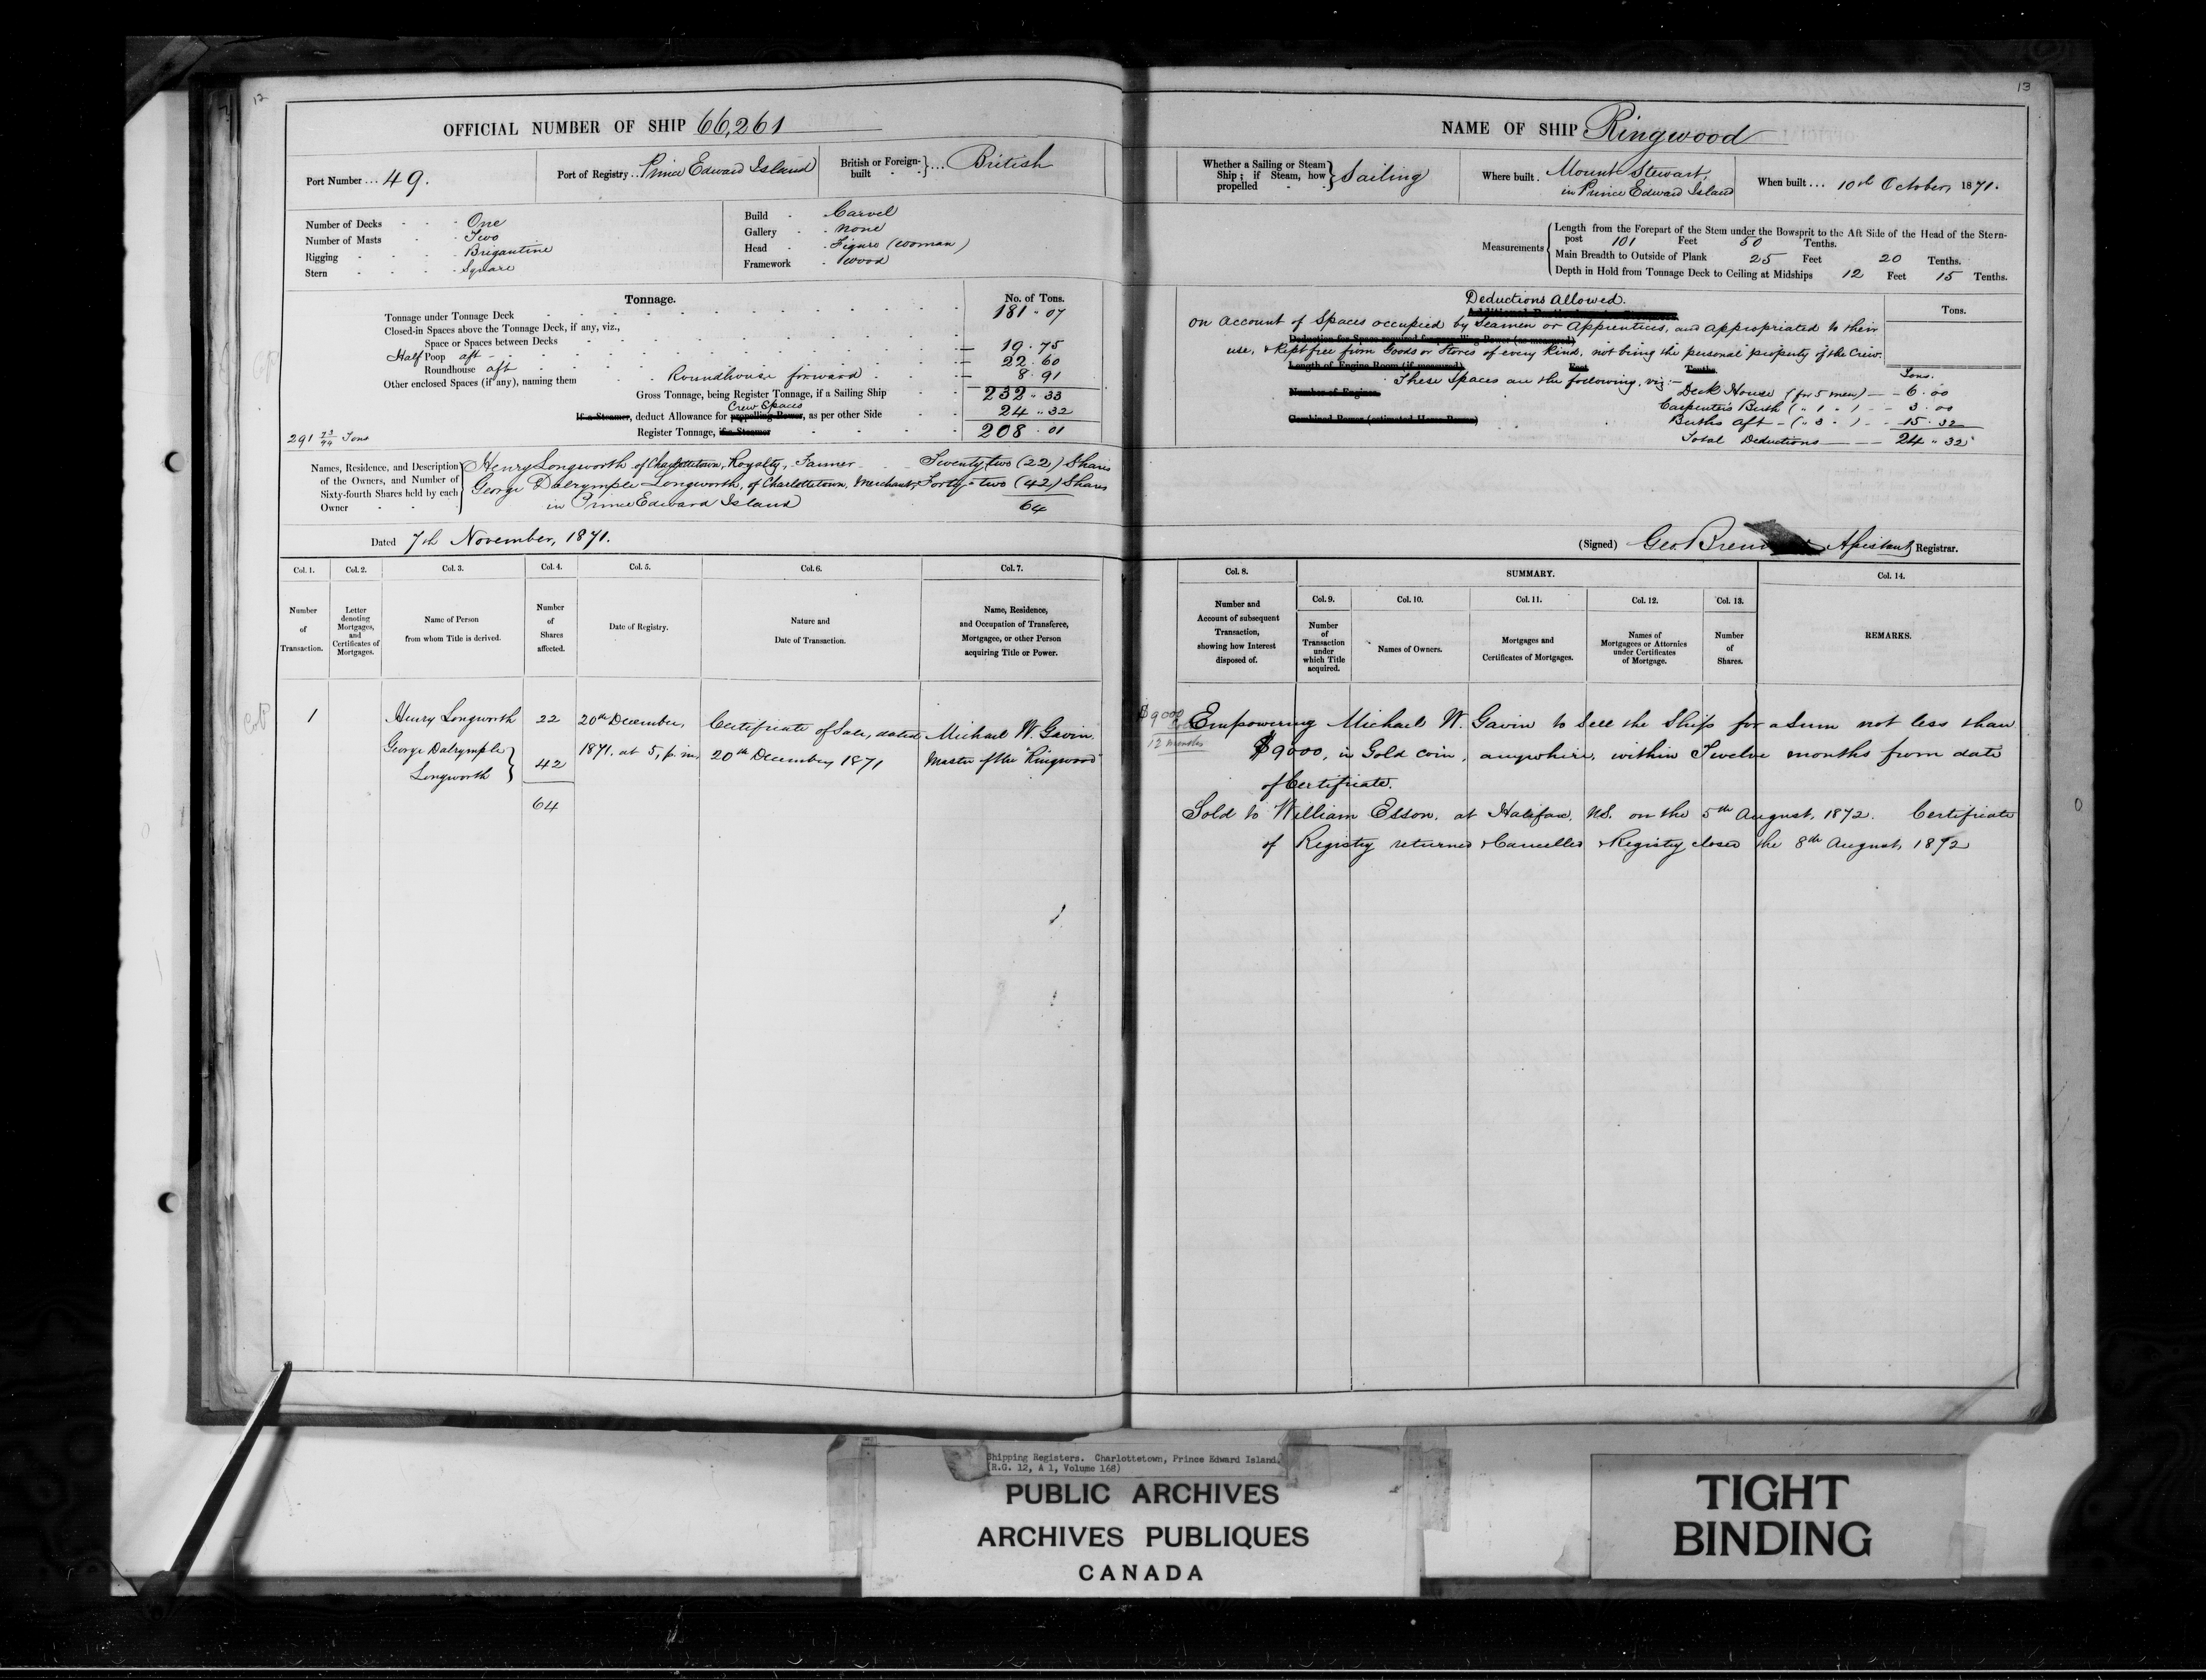 12
OFFICIAL NUMBER OF SHIP 66,261
Port Number ... 49.
Port of Registry .. Prince Edward Island
British or Foreign-built } ... British
Number of Decks - - - One
Number of Masts - - - Two
Rigging - - - - Brigantine
Stern - - - - Square
Build - Carvel
Gallery - None
Head - Figure (Woman)
Framework - Wood
Tonnage.
No. of Tons.
Tonnage under Tonnage Deck 181 " 07
Closed-in Spaces above the Tonnage Deck, if any, viz.,
Space or Spaces between Decks
Half Poop aft 19 . 75
Roundhouse aft 22 . 60
Other enclosed Spaces (if any), naming them Roundhouse forward 8 . 91
Gross Tonnage, being Register Tonnage, if a Sailing Ship 232 " 33
Crew Spaces
If a Steamer, deduct Allowance for propelling Power, as per other Side 24 " 32
Register Tonnage, if a Steamer 208 . 01
291 73/94 Tons
Names, Residence, and Description of the Owners, and Number of Sixty-fourth Shares held by each Owner
Henry Longworth of Charlottetown, Royalty, Farmer Twenty two (22) Shares
George Dalrymple Longworth, of Charlottetown, Merchant, Forty-two (42) Shares
in Prince Edward Island 64
Dated 7th November, 1871.
Col. 1. Col. 2. Col. 3. Col. 4. Col. 5. Col. 6. Col. 7.
Number of Transaction.
Letter denoting Mortgages, and Certificates of Mortgages.
Name of Person from whom Title is derived.
Number of Shares affected.
Date of Registry.
Nature and Date of Transaction.
Name, Residence, and Occupation of Transferee, Mortgagee, or other Person acquiring Title or Power.
1 Henry Longworth 22 20th December, Certificate of Sale, dated Michael W. Gavin
George Dalrymple Longworth } 42 1871. at 5, p.m. 20th December, 1871 Master of the "Ringwood"
64
13
NAME OF SHIP Ringwood
Whether a Sailing or Steam Ship; if Steam, how propelled } Sailing
Where built . Mount Stewart, in Prince Edward Island
When built ... 10th October, 1871.
Measurements
Length from the Forepart of the Stem under the Bowsprit to the Aft Side of the Head of the Stern-
post 101 Feet 50 Tenths.
Main Breadth to Outside of Plank 25 Feet 20 Tenths.
Depth in Hold from Tonnage Deck to Ceiling at Midships 12 Feet 15 Tenths.
Deductions Allowed.
Tons.
On Account of Spaces occupied by Seamen or Apprentices, and appropriated to their
Deduction for Space required for propelling Power (as measured)
use, & Kept free from Goods or Stores of every kind, not being the personal property of the Crew.
Length of Engine Room (if measured) Feet Tenths.
These Spaces are the following, viz:— Tons.
Number of Engines
Deck House (for 5 men) — 6 . 00
Carpenter's Berth ( " 1 " ) — 3 . 00
Combined Power (estimated Horse Power)
Berths aft — ( " 3 " ) — 15 . 32
Total Deductions — 24 " 32
(Signed) Geo. Assistant Registrar.
Col. 8. SUMMARY. Col. 14.
Col. 9. Col. 10. Col. 11. Col. 12. Col. 13.
Number and Account of subsequent Transaction, showing how Interest disposed of.
Number of Transaction under which Title acquired.
Names of Owners.
Mortgages and Certificates of Mortgages.
Names of Mortgagees or Attornies under Certificates of Mortgage.
Number of Shares.
REMARKS.
$9000
12 months
Empowering Michael W. Gavin to Sell the Ship for a Sum not less than
$9000, in Gold coin, anywhere, within Twelve months from date
of Certificate.
Sold to William Esson, at Halifax, NS. on the 5th August, 1872. Certificate
of Registry returned & Cancelled & Registry closed the 8th August, 1872
Shipping Registers. Charlottetown, Prince Edward Island.
(R.G. 12, A 1, Volume 168)
PUBLIC ARCHIVES
ARCHIVES PUBLIQUES
CANADA
TIGHT
BINDING